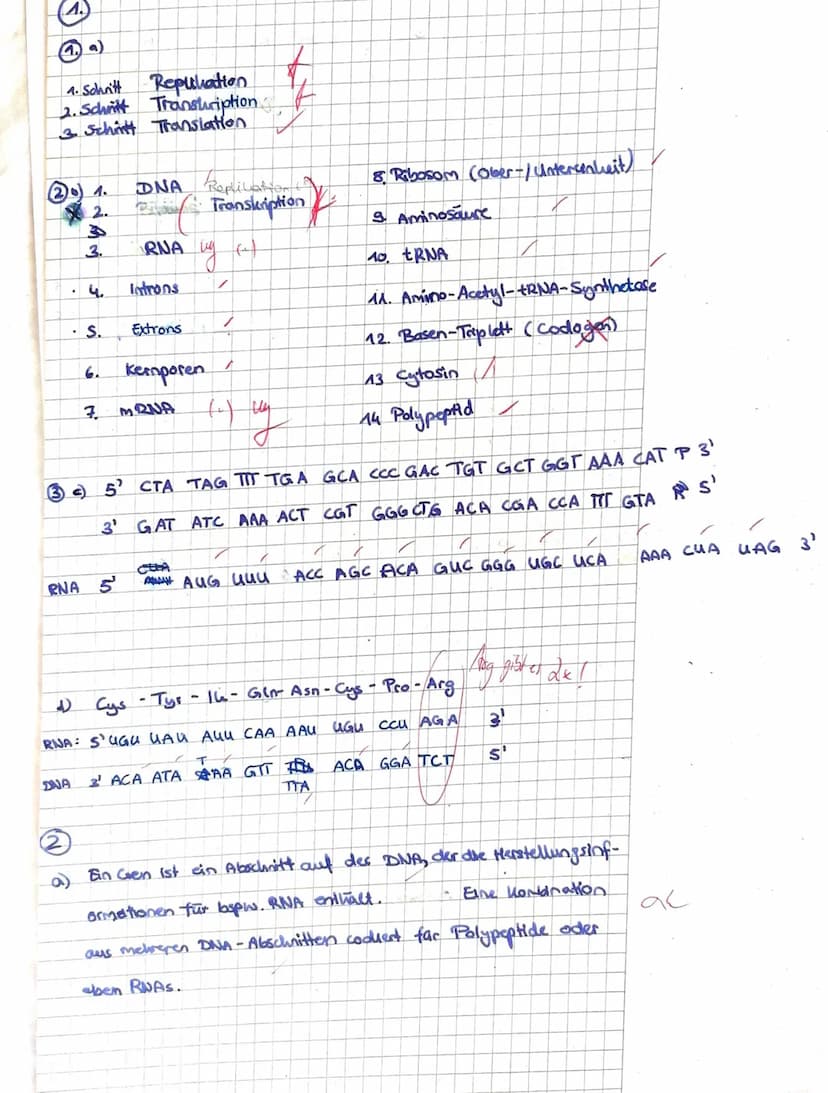 1.
1. a)
1. Schritt Replikation
2. Schritt Transkription
3. Schritt Translation
2 b) 1. DNA Replikation
2. Transkription
3. RNA ug (-)
4. Introns
5. Extrons
6. Kernporen
7. mRNA (-) ug
8. Ribosom (Ober-/Untereinheit)
9. Aminosäure
10. tRNA
11. Amino-Acetyl-tRNA-Synthetase
12. Basen-Triplett (Codogen)
13 Cytosin
14 Polypeptid
3 c) 5' CTA TAG TTT TGA GCA CCC GAC TGT GCT GGT AAA CAT P 3'
3' GAT ATC AAA ACT CGT GGG CTG ACA CGA CCA TTT GTA P 5'
RNA 5' CUA AUG UUU ACC AGC ACA GUC GGG UGC UCA AAA CUA UAG 3'
d) Cys - Tyr - Ile - Gln - Asn - Cys - Pro - Arg
Arg gibt es 2x!
RNA: 5' UGU UAU AUU CAA AAU UGU CCU AGA 3'
DNA 3' ACA ATA TAA GTT TTA ACA GGA TCT 5'
2
a) Ein Gen ist ein Abschnitt auf der DNA, der die Herstellungsinf-
ormationen für bspw. RNA enthält. Eine Kombination
aus mehreren DNA-Abschnitten codiert für Polypeptide oder
eben RNAs.